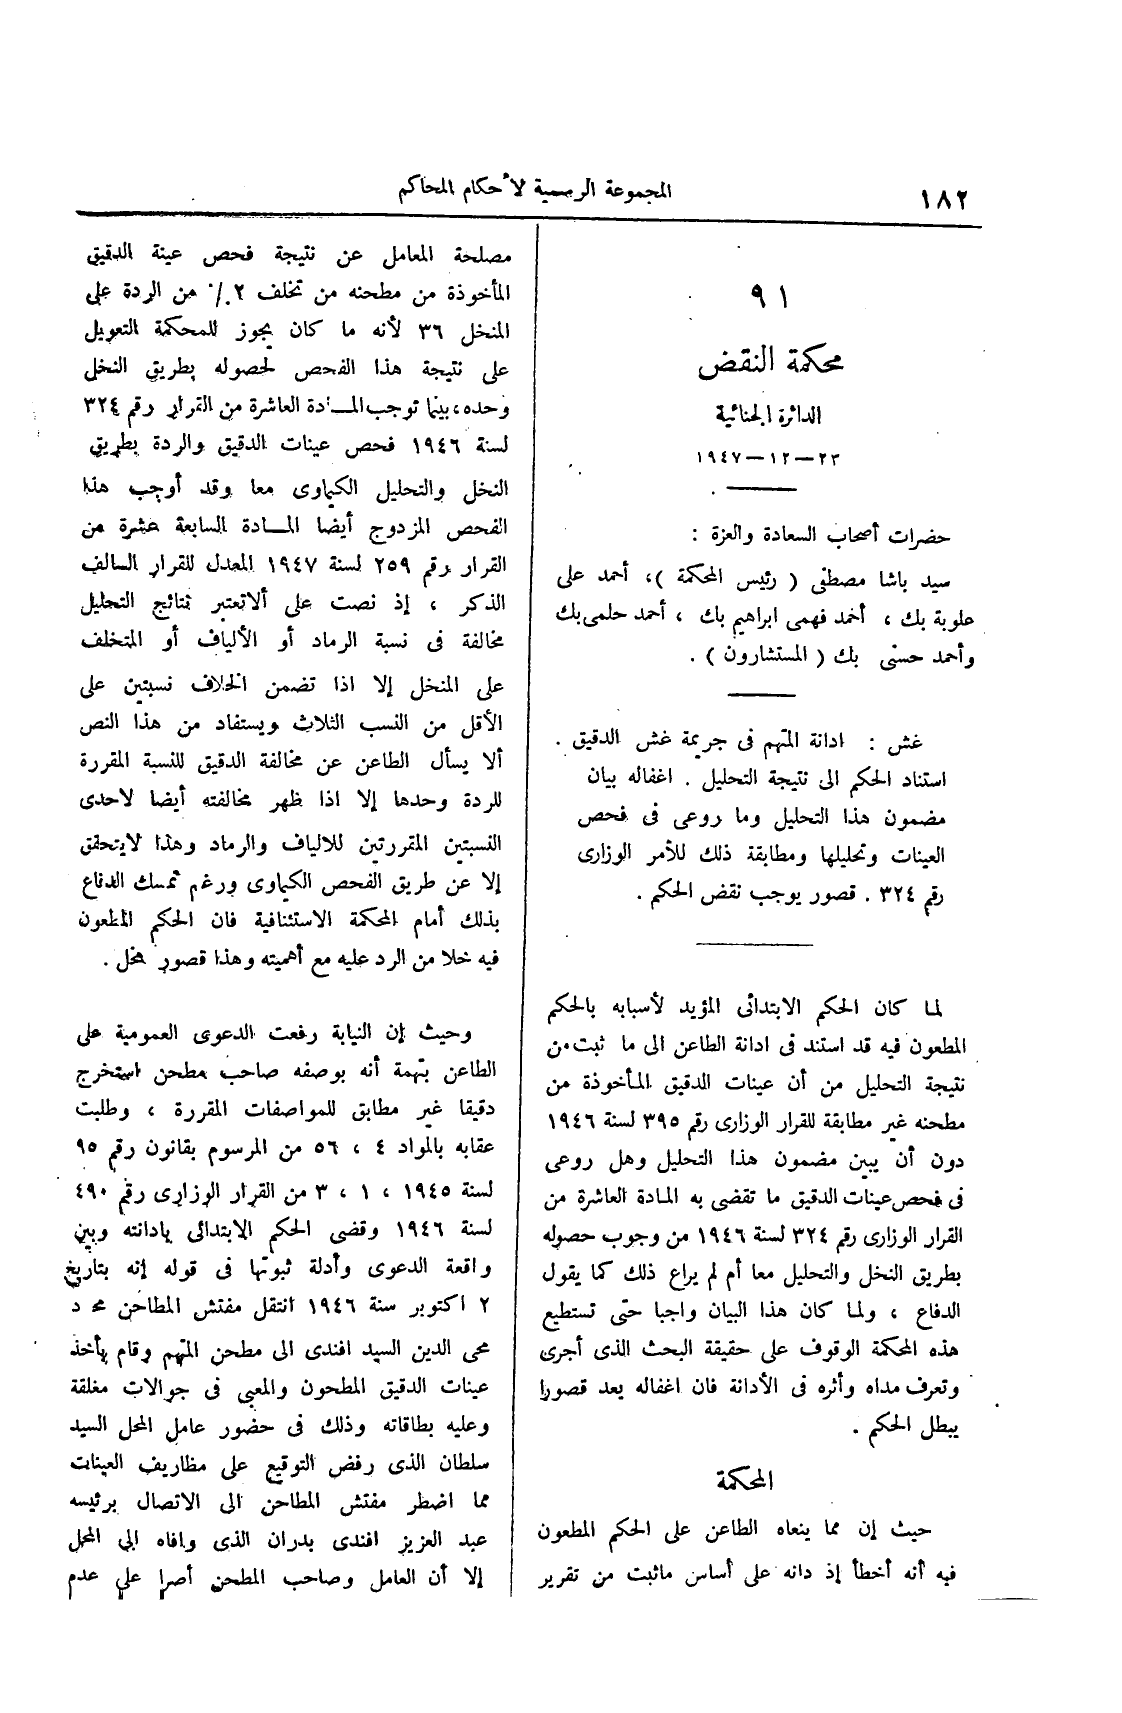 ١٨٢
المجموعة الرسمية لأحكام المحاكم
٩١
محكمة النقض
الدائرة الجنائية
٢٣ — ١٢ — ١٩٤٧
حضرات أصحاب السعادة والعزة :
سيد باشا مصطفى ( رئيس المحكمة )، أحمد على
علوبة بك ، أحمد فهمى ابراهيم بك ، أحمد حلمى بك
وأحمد حسنى بك ( المستشارون ) .
غش : ادانة المتهم فى جريمة غش الدقيق .
استناد الحكم الى نتيجة التحليل . اغفاله بيان
مضمون هذا التحليل وما روعى فى فحص
العينات وتحليلها ومطابقة ذلك للأمر الوزارى
رقم ٣٢٤ . قصور يوجب نقض الحكم .
لما كان الحكم الابتدائى المؤيد لأسبابه بالحكم
المطعون فيه قد استند فى ادانة الطاعن الى ما ثبت من
نتيجة التحليل من أن عينات الدقيق المأخوذة من
مطحنه غير مطابقة للقرار الوزارى رقم ٣٩٥ لسنة ١٩٤٦
دون أن يبين مضمون هذا التحليل وهل روعى
فى فحص عينات الدقيق ما تقضى به المادة العاشرة من
القرار الوزارى رقم ٣٢٤ لسنة ١٩٤٦ من وجوب حصوله
بطريق النخل والتحليل معا أم لم يراع ذلك كما يقول
الدفاع ، ولما كان هذا البيان واجبا حتى تستطيع
هذه المحكمة الوقوف على حقيقة البحث الذى أجرى
وتعرف مداه وأثره فى الأدانة فان اغفاله يعد قصورا
يبطل الحكم .
المحكمة
حيث إن مما ينعاه الطاعن على الحكم المطعون
فيه أنه أخطأ إذ دانه على أساس ماثبت من تقرير
مصلحة المعامل عن نتيجة فحص عينة الدقيق
المأخوذة من مطحنه من تخلف ٢٪ من الردة على
المنخل ٣٦ لأنه ما كان يجوز للمحكمة التعويل
على نتيجة هذا الفحص لحصوله بطريق النخل
وحده، بينما توجب المادة العاشرة من القرار رقم ٣٢٤
لسنة ١٩٤٦ فحص عينات الدقيق والردة بطريق
النخل والتحليل الكيماوى معا وقد أوجب هذا
الفحص المزدوج أيضا المادة السابعة عشرة من
القرار رقم ٢٥٩ لسنة ١٩٤٧ المعدل للقرار السالف
الذكر ، إذ نصت على ألاتعتبر نتائج التحليل
مخالفة فى نسبة الرماد أو الألياف أو المتخلف
على المنخل إلا اذا تضمن الخلاف نسبتين على
الأقل من النسب الثلاث ويستفاد من هذا النص
ألا يسأل الطاعن عن مخالفة الدقيق للنسبة المقررة
للردة وحدها إلا اذا ظهر مخالفته أيضا لاحدى
النسبتين المقررتين للالياف والرماد وهذا لايتحقق
إلا عن طريق الفحص الكيماوى ورغم تمسك الدفاع
بذلك أمام المحكمة الاستئنافية فان الحكم المطعون
فيه خلا من الرد عليه مع أهميته وهذا قصور مخل .
وحيث إن النيابة رفعت الدعوى العمومية على
الطاعن بتهمة أنه بوصفه صاحب مطحن استخرج
دقيقا غير مطابق للمواصفات المقررة ، وطلبت
عقابه بالمواد ٤ ، ٥٦ من المرسوم بقانون رقم ٩٥
لسنة ١٩٤٥ ، ١ ، ٣ من القرار الوزارى رقم ٤٩٠
لسنة ١٩٤٦ وقضى الحكم الابتدائى بإدانته وبين
واقعة الدعوى وأدلة ثبوتها فى قوله إنه بتاريخ
٢ اكتوبر سنة ١٩٤٦ انتقل مفتش المطاحن محمد
محى الدين السيد افندى الى مطحن المتهم وقام بأخذ
عينات الدقيق المطحون والمعبى فى جوالات مغلقة
وعليه بطاقاته وذلك فى حضور عامل المحل السيد
سلطان الذى رفض التوقيع على مظاريف العينات
مما اضطر مفتش المطاحن الى الاتصال برئيسه
عبد العزيز افندى بدران الذى وافاه الى المحل
إلا أن العامل وصاحب المطحن أصرا على عدم